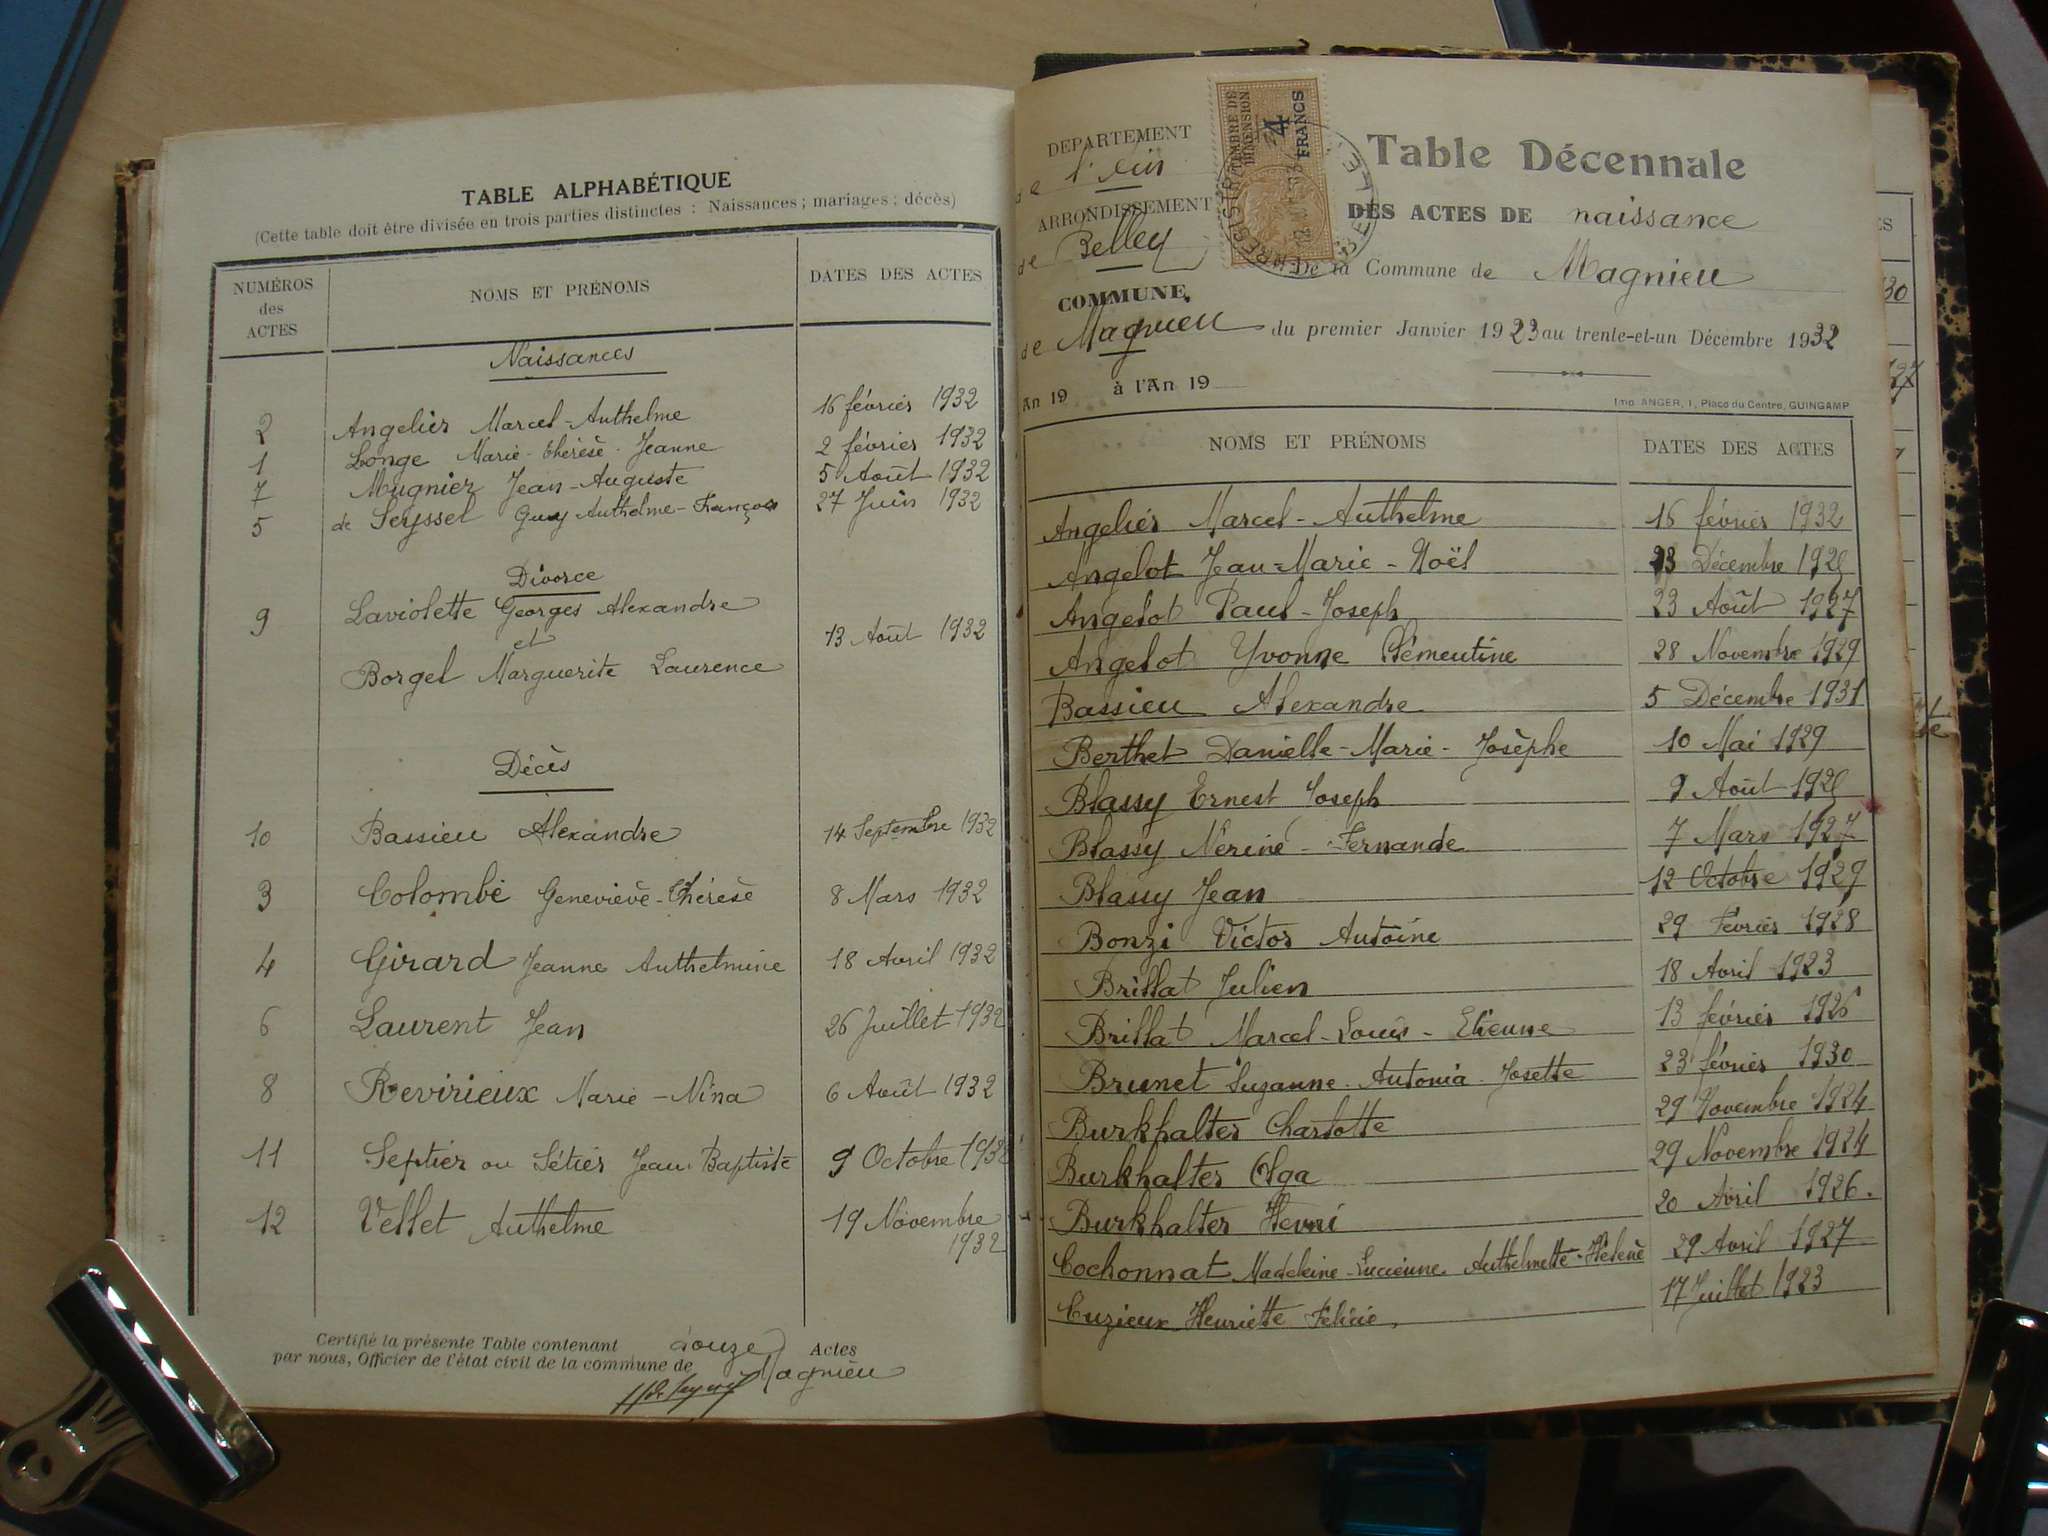 TABLE ALPHABÉTIQUE
(Cette table doit être divisée en trois parties distinctes : Naissances ; mariages ; décès)
NUMÉROS des ACTES NOMS ET PRÉNOMS DATES DES ACTES
Naissances
2 Angelier Marcel-Anthelme 16 février 1932
1 Longe Marie-Thérèse-Jeanne 2 février 1932
7 Mugnier Jean-Auguste 5 Août 1932
5 de Seyssel Guy Anthelme-François 27 Juin 1932
Divorce
9 Laviolette Georges Alexandre
et 13 Août 1932
Borgel Marguerite Laurence
Décès
10 Bassieu Alexandre 14 Septembre 1932
3 Colombe Geneviève-Thérèse 8 Mars 1932
4 Girard Jeanne Anthelmine 18 Avril 1932
6 Laurent Jean 26 Juillet 1932
8 Revirieux Marie-Nina 6 Août 1932
11 Septier ou Sétier Jean-Baptiste 9 Octobre 1932
12 Vellet Anthelme 19 Novembre
1932
Certifié la présente Table contenant douze Actes
par nous, Officier de l'état civil de la commune de Magnieu
DEPARTEMENT
de l'Ain
ARRONDISSEMENT
de Belley
COMMUNE
de Magnieu
An 19 à l'An 19
TIMBRE DE
DIMENSION
4
FRANCS
Table Décennale
DES ACTES DE naissance
De la Commune de Magnieu
du premier Janvier 1923 au trente-et-un Décembre 1932
Imp. ANGER, 1, Place du Centre, GUINGAMP
NOMS ET PRÉNOMS DATES DES ACTES
Angelier Marcel-Anthelme 16 février 1932
Angelot Jean-Marie-Noël 23 Décembre
Angelot Paul-Joseph 23 Août 1927
Angelot Yvonne Clémentine 28 Novembre 1929
Bassieu Alexandre 5 Décembre 1931
Berthet Danielle-Marie-Josèphe 10 Mai 1929
Blassy Ernest Joseph 9 Août
Blassy Nérine-Fernande 7 Mars 1927
Blassy Jean 12 Octobre 1929
Bonzi Victor Antoine 29 Février 1928
Brillat Julien 18 Avril 1923
Brillat Marcel-Louis-Etienne 13 février 1926
Brunet Suzanne-Antonia-Josette 23 février 1930
Burkhalter Charlotte 29 Novembre 1924
Burkhalter Olga 29 Novembre 1924
Burkhalter Henri 20 Avril 1926.
Cochonnat Madeleine-Lucienne-Anthelmette-Hélène 29 Avril 1927
Cuzieux Henriette Félicie. 17 Juillet 1923